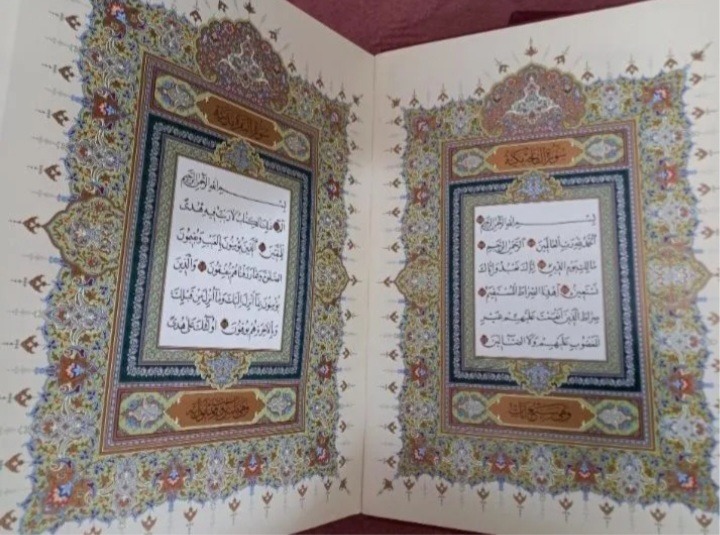 سورة الفاتحة مكية
بسم الله الرحمن الرحيم
الحمد لله رب العالمين الرحمن الرحيم
مالك يوم الدين إياك نعبد وإياك
نستعين اهدنا الصراط المستقيم
صراط الذين أنعمت عليهم غير
المغضوب عليهم ولا الضالين
وهي سبع آيات
سورة البقرة مدنية
بسم الله الرحمن الرحيم
الم ذلك الكتاب لا ريب فيه هدى
للمتقين الذين يؤمنون بالغيب ويقيمون
الصلوة ومما رزقناهم ينفقون والذين
يؤمنون بما أنزل إليك وما أنزل من قبلك
وبالآخرة هم يوقنون أولئك على هدى